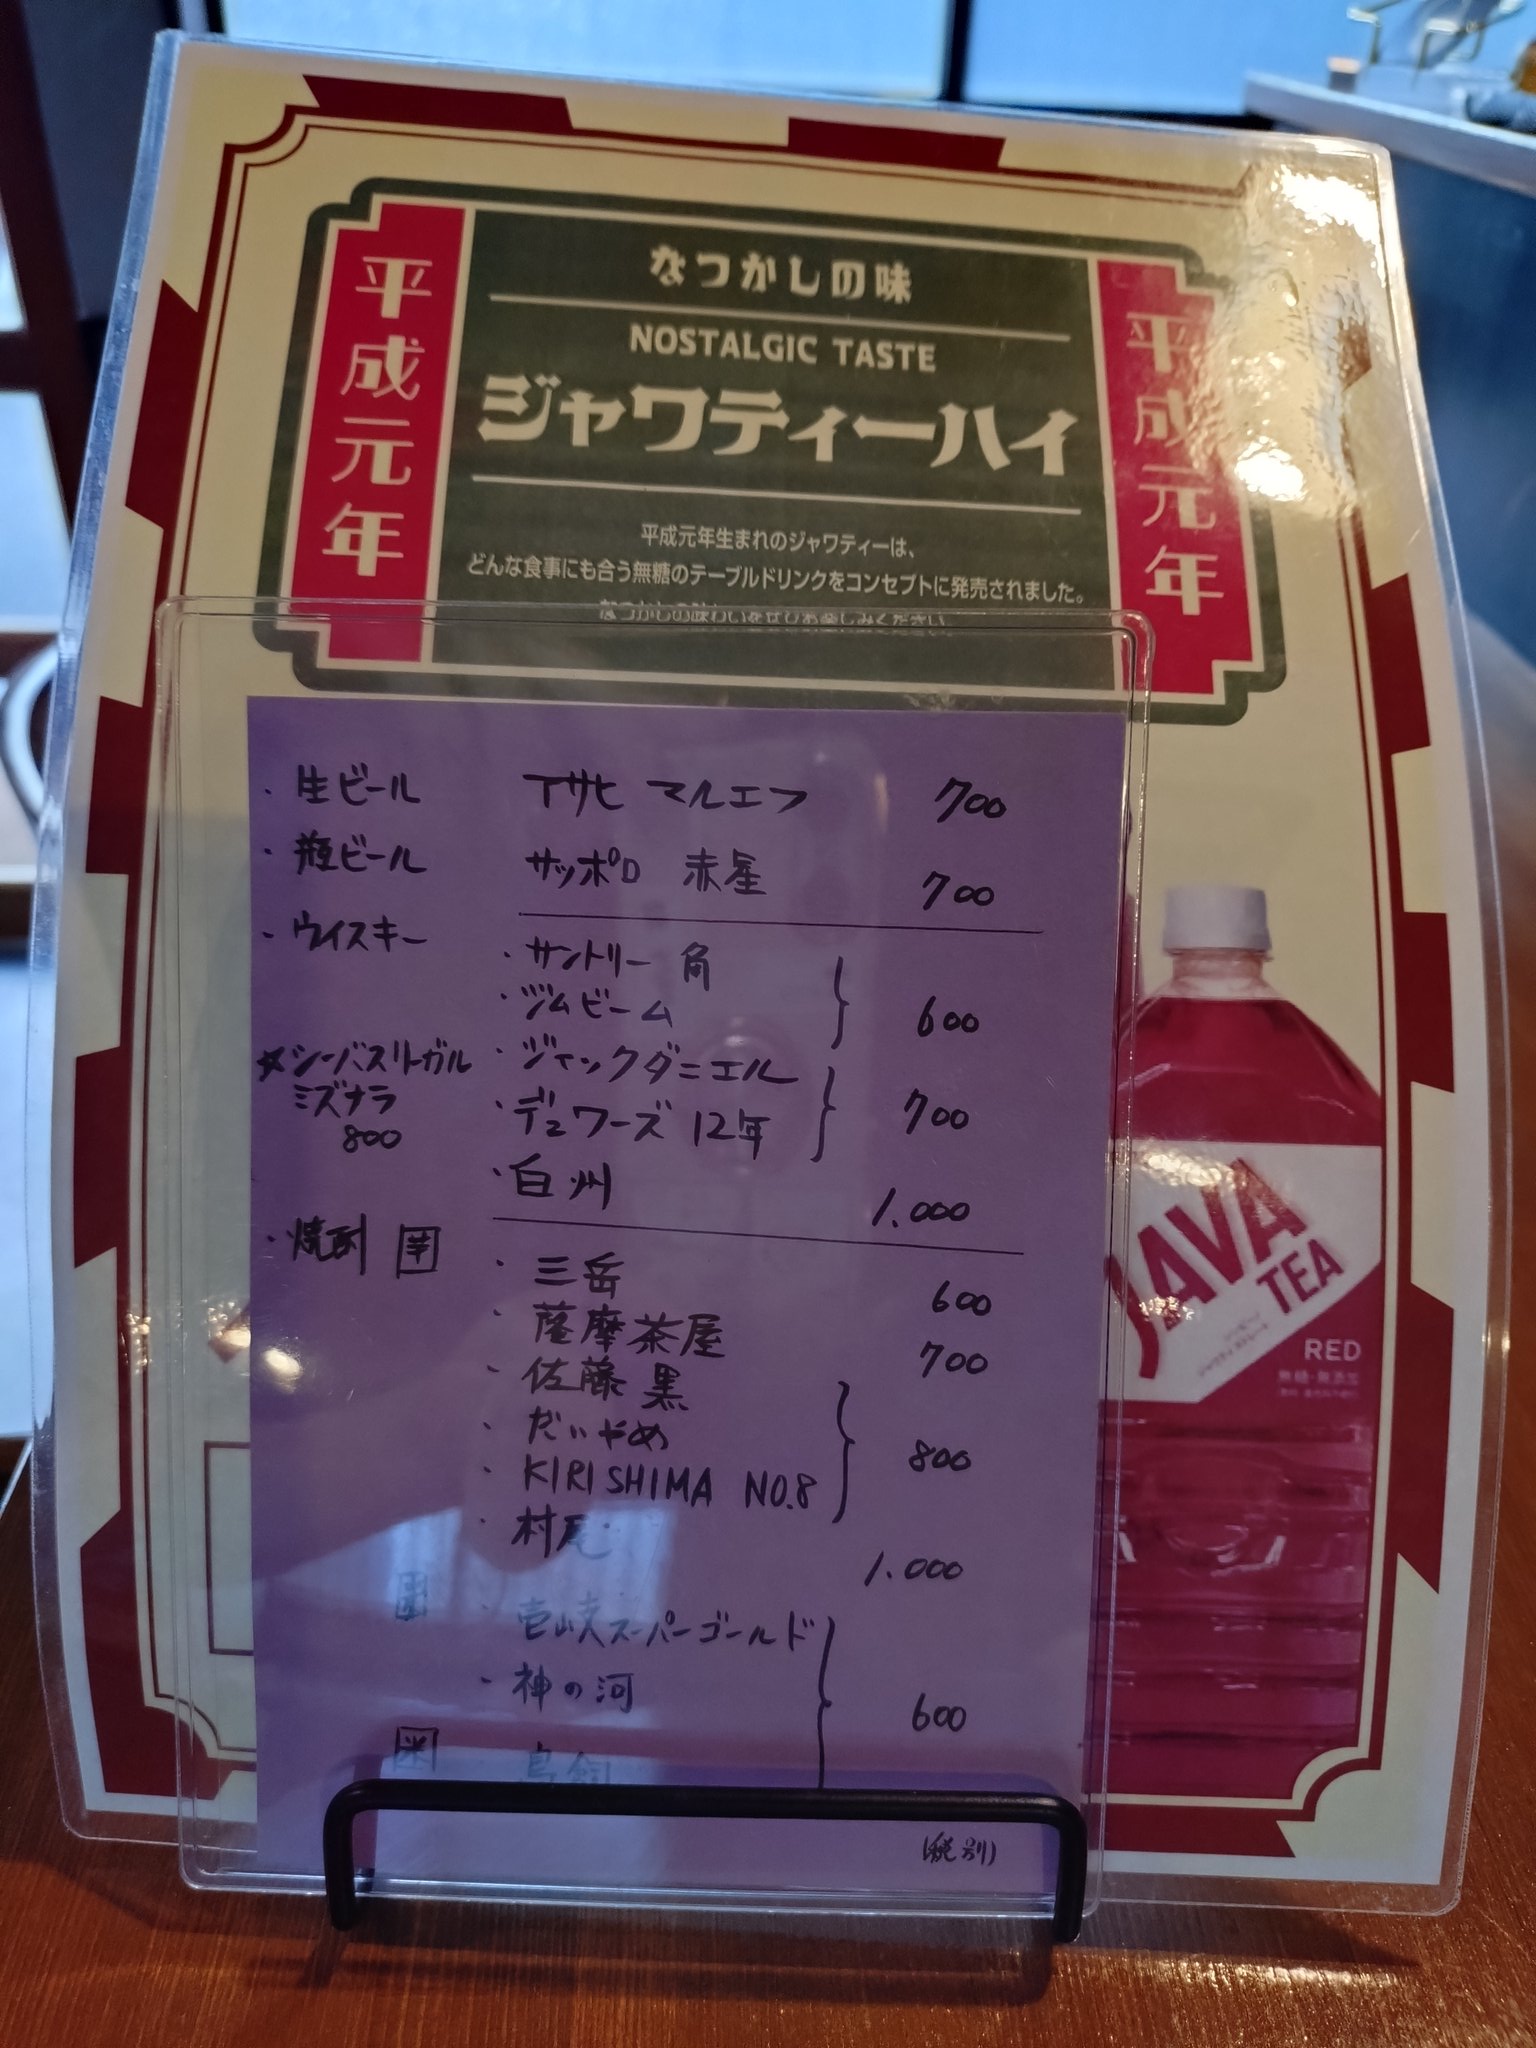 平成元年
なつかしの味
NOSTALGIC TASTE
ジャワティーハイ
平成元年生まれのジャワティーは、
どんな食事にも合う無糖のテーブルドリンクをコンセプトに発売されました。
なつかしの味わいをぜひお楽しみください。
平成元年
・生ビール アサヒ マルエフ 700
・瓶ビール サッポロ 赤星 700
・ウイスキー ・サントリー 角
・ジムビーム 600
☆シーバスリーガル ・ジャックダニエル
ミズナラ ・デュワーズ 12年 700
800
・白州 1.000
・焼酎 芋 ・三岳 600
・薩摩茶屋 700
・佐藤 黒
・だいやめ 800
・KIRISHIMA NO.8
・村尾 1.000
麦 ・壱岐スーパーゴールド
・神の河 600
米 鳥飼
(税別)
JAVA
TEA
RED
無糖・無添加